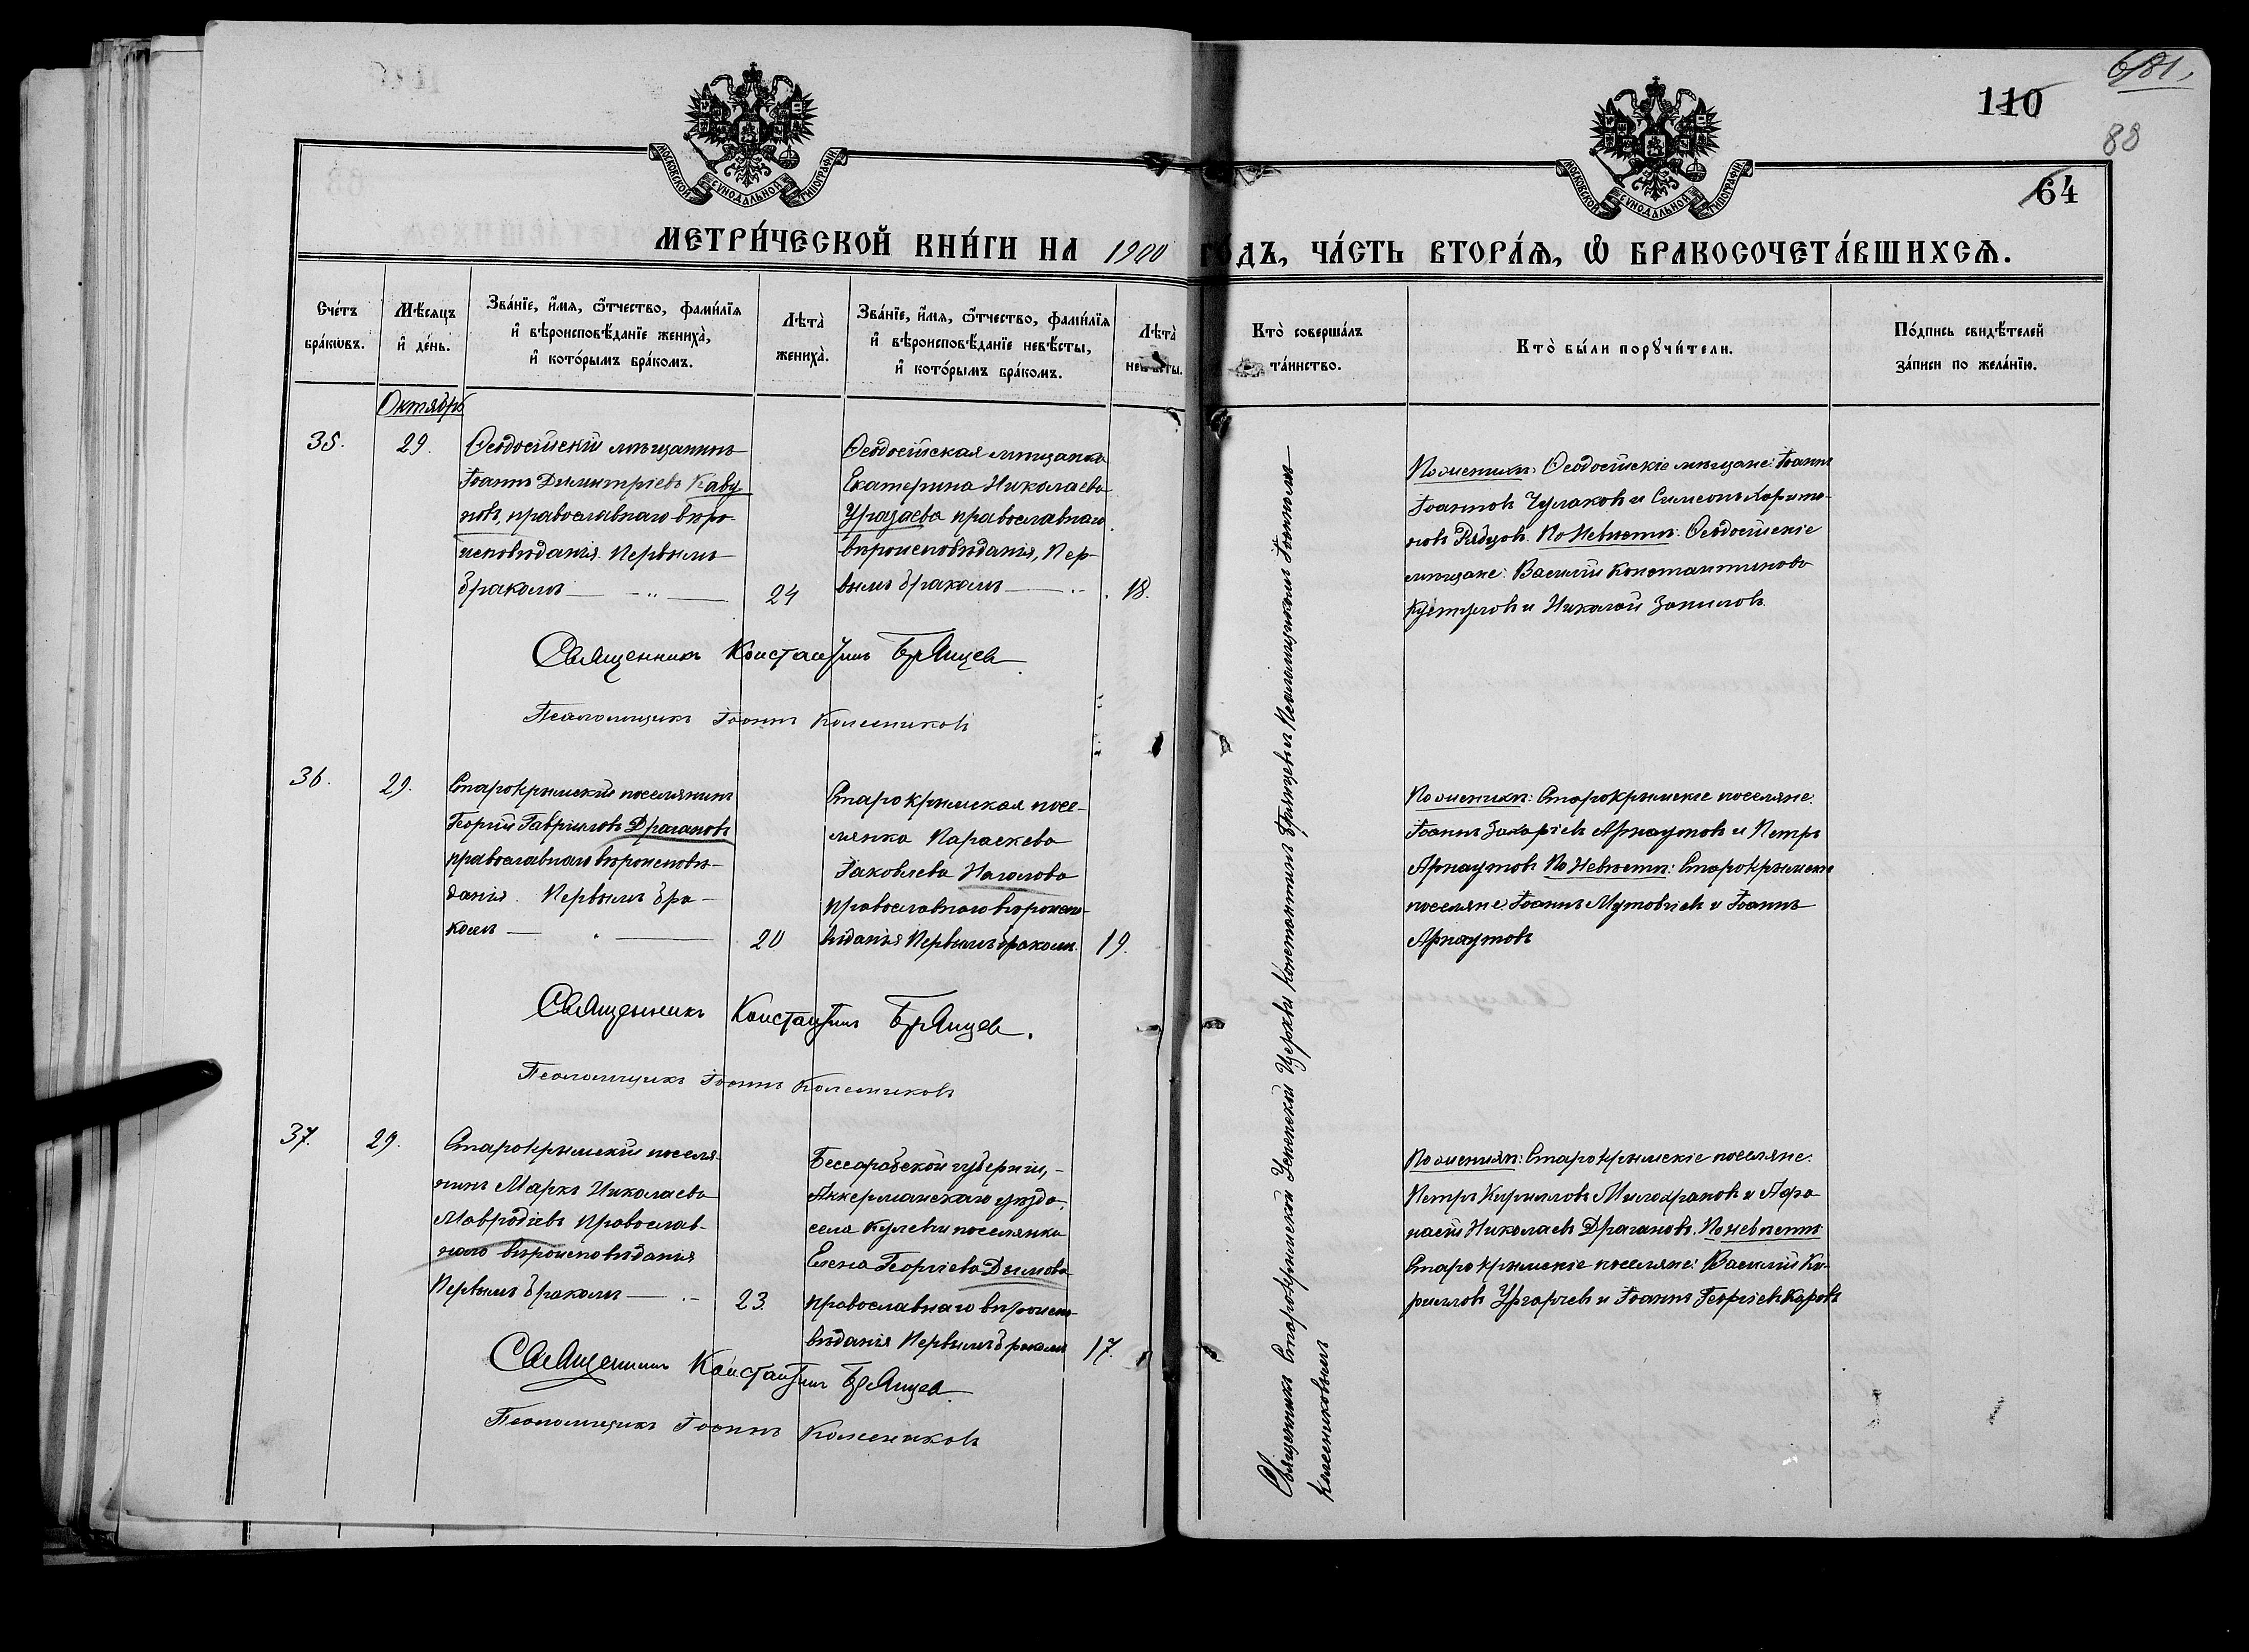 681.
110
88
64
МОСКОВСКОЙ СѴНОДАЛЬНОЙ ТИПОГРАФІИ
МОСКОВСКОЙ СѴНОДАЛЬНОЙ ТИПОГРАФІИ
МЕТРИ́ЧЕСКОЙ КНИ́ГИ НА 1900 ГО́ДЪ, ЧА́СТЬ ВТОРА́Ѧ, Ѽ БРАКОСОЧЕТА́ВШИХСѦ.
Сче́тъ бра́кѡвъ.
Мѣ́сяцъ и҆ де́нь.
Зва́нїе, и҆́мя, ѻ҆́тчество, фами́лїя и҆ вѣроисповѣ́данїе жениха̀, и҆ кото́рымъ бра́комъ.
Лѣта̀ жениха̀.
Зва́нїе, и҆́мя, ѻ҆́тчество, фами́лїя и҆ вѣроисповѣ́данїе невѣ́сты, и҆ кото́рымъ бра́комъ.
Лѣта̀ невѣсты.
Кто̀ соверша́лъ та́инство.
Кто̀ бы́ли порꙋчи́тели.
По́дпись свидѣ́телей за́писи по жела́нїю.
Октябрь
35.
29.
Ѳеодосійскій мѣщанинъ
Іоаннъ Димитріевъ Каву-
новъ, православнаго вѣро-
исповѣданія. Первымъ
бракомъ
24
Ѳеодосійская мѣщанка
Екатерина Николаева
православнаго
вѣроисповѣданія, Пер-
вымъ бракомъ
18.
По женихѣ: Ѳеодосійскіе мѣщане: Іоаннъ
Іоанновъ Чулаковъ и Симеонъ Харито-
новъ Рябцовъ. По Невѣстѣ: Ѳеодосійскіе
мѣщане: Василій Константиновъ
и Николай
Священникъ Константинъ Брянцев.
Псаломщикъ Іоаннъ Колесниковъ
36.
29.
Старокрымскій поселянинъ
Георгій Гавриловъ Драгановъ
православнаго вѣроисповѣ-
данія. Первымъ бра-
комъ
20
Старокрымская посе-
лянка Параскева
Іаковлева Наголова
православнаго вѣроиспо-
вѣданія Первымъ бракомъ.
19.
По женихѣ: Старокрымскіе поселяне:
Іоаннъ Захаріевъ Арнаутовъ и Петръ
Арнаутовъ По Невѣстѣ: Старокрымскіе
поселяне Іоаннъ Мутовчіевъ и Іоаннъ
Арнаутовъ
Священникъ Константинъ Брянцев.
Псаломщикъ Іоаннъ Колесниковъ
37.
29.
Старокрымскій поселя-
нинъ Маркъ Николаевъ
Мавродіевъ Православ-
наго вѣроисповѣданія
Первымъ бракомъ
23.
Бессарабской губерніи,
Аккерманскаго уѣзда,
села Кулевчи поселянка
Елена Георгіева Дымова
православнаго вѣроиспо-
вѣданія Первымъ бракомъ
17.
По женихѣ: Старокрымскіе поселяне:
Петръ Кирилловъ и Афа-
насій Николаевъ Драгановъ. По невѣстѣ
Старокрымскіе поселяне: Василій Ки-
рилловъ и Іоаннъ Георгіевъ Каровъ
Священникъ Константинъ Брянцев.
Псаломщикъ Іоаннъ Колесниковъ
Священникъ Старокрымской Успенской Церкви Константинъ Брянцевъ съ Псаломщикомъ Іоанномъ
Колесниковымъ